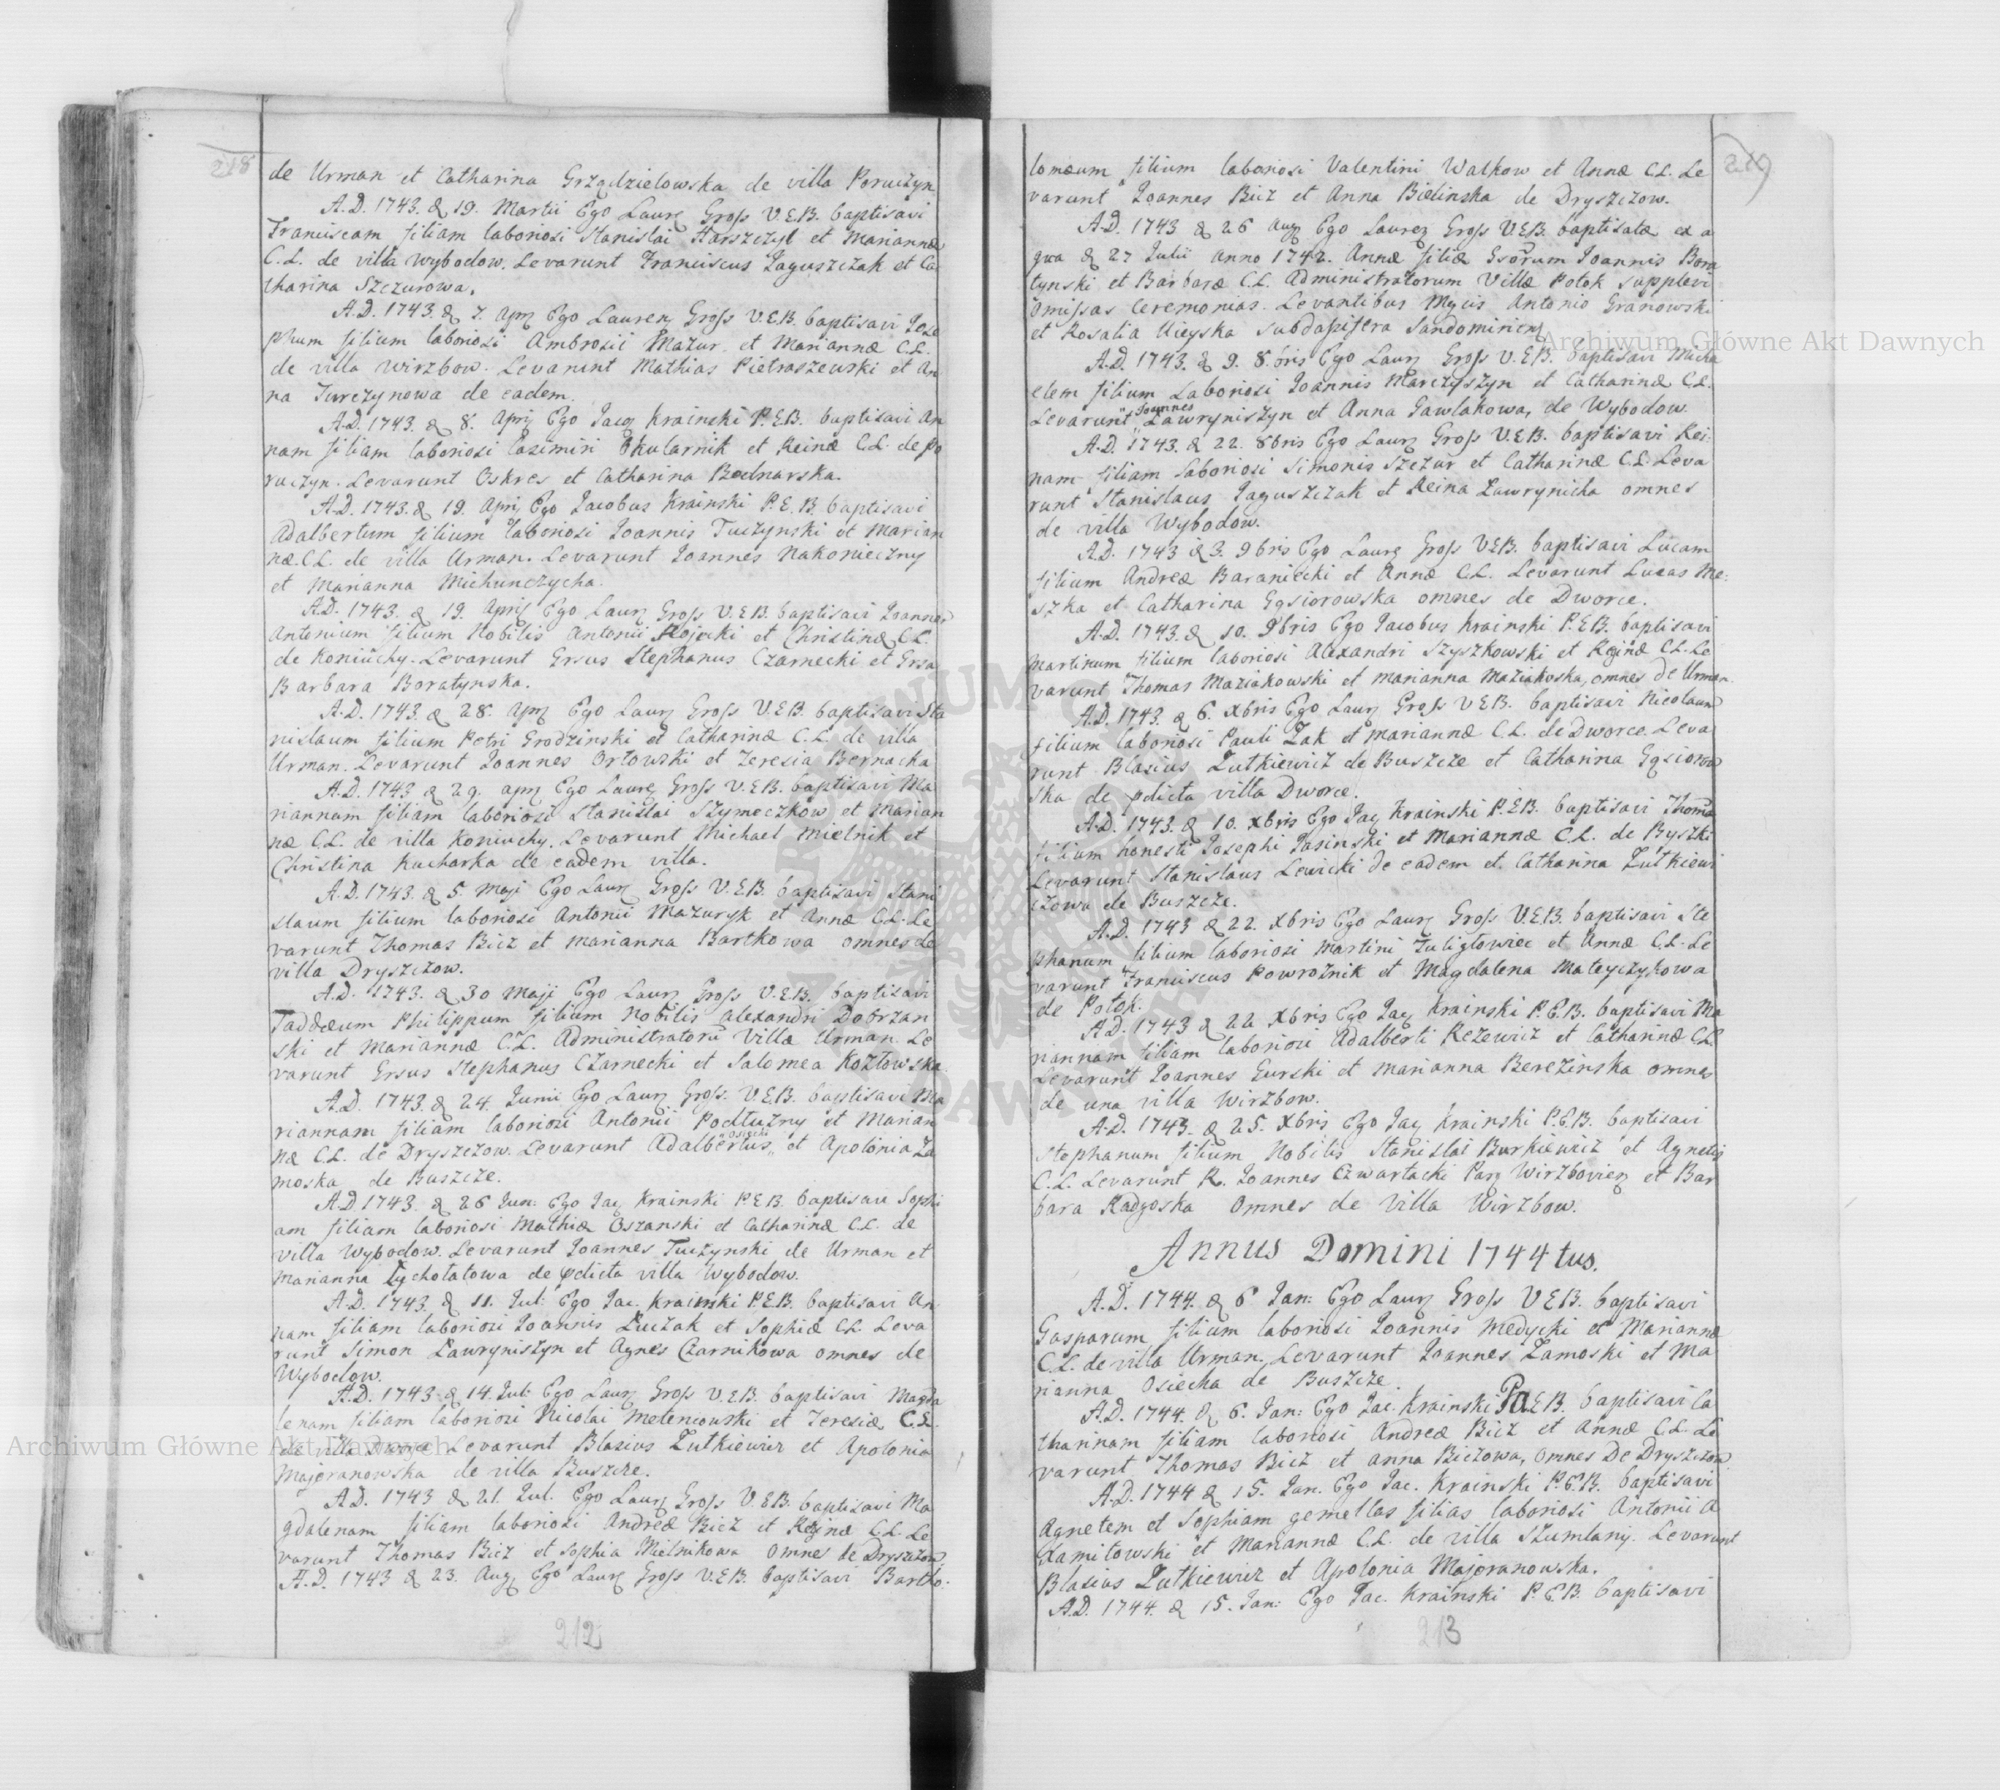 218
de Urman et Catharina Grządzielowska de villa Poruczyn
A.D. 1743. d 19. Martii Ego Laurę Gross V.E.B. baptisavi
Franciscam filiam laboriosi Stanislai Harszczyl et Mariannæ
C.L. de villa Wybodow. Levarunt Franciscus Jaguszczak et Ca
tharina Szczurowa.
A.D. 1743. d 7. Apr Ego Lauren Gross V.E.B. baptisavi Jose
phum filium laboriosi Ambrosii Mazur et Mariannæ C.L.
de villa Wirzbow. Levarunt Mathias Pietraszewski et An
na Turczynowa de eadem.
A.D. 1743. d 8. Apr Ego Jacq Krainski P.E.B. baptisavi An
nam filiam laboriosi Casimiri Okularnik et Reinæ C.L. de Po
ruczyn. Levarunt Oskres et Catharina Bednarska.
A.D. 1743. d 19. Apr Ego Jacobus Krainski P.E.B. baptisavi
Adalbertum filium laboriosi Joannis Tuczynski et Marian
næ C.L. de villa Urman. Levarunt Joannes Nakonieczny
et Marianna Michunczycha.
A.D. 1743. d 19. Apri Ego Laur Gross V.E.B. baptisavi Joannem
Antonium filium Nobilis Antonii Stojecki et Christinæ C.L.
de Koniuchy. Levarunt Grsus Stephanus Czarnecki et Grsa
Barbara Boratynska.
A.D. 1743. d 28. Apr Ego Laur Gross V.E.B. baptisavi Sta
nislaum filium Petri Grodzinski et Catharinæ C.L. de villa
Urman. Levarunt Joannes Orłowski et Teresia Bernacka
A.D. 1743 d 29. apr Ego Laurę Gross V.E.B. baptisavi Ma
riannam filiam laboriosi Stanislai Szymeczkow et Marian
næ C.L. de villa Koniuchy. Levarunt Michael Mielnik et
Christina Kucharka de eadem villa.
A.D. 1743. d 5 Maji Ego Laur Gross V.E.B. baptisavi Stani
slaum filium laboriosi Antonii Mazuryk et Annæ C.L. Le
varunt Thomas Bicz et Marianna Bartkowa omnes de
villa Dryszczow.
A.D. 1743. d 30 Maji Ego Laur Gross V.E.B. baptisavi
Taddæum Philippum filium Nobilis Alexandri Dobrzan
ski et Mariannæ C.L. Administratorū Villæ Urman. Le
varunt Grsus Stephanus Czarnecki et Salomea Kozłowska.
A.D. 1743. d 24. Junii Ego Laur Gross. V.E.B. baptisavi Ma
riannam filiam laboriosi Antonii Podłużny et Marian
næ C.L. de Dryszczow. Levarunt Adalbertus Osiecki et Apolonia Za
moska de Buszcze.
A.D. 1743. d 26 Jun: Ego Jac Krainski P.E.B. baptisavi Sophi
am filiam laboriosi Mathiæ Oszanski et Catharinæ C.L. de
villa Wybodow. Levarunt Joannes Tuczynski de Urman et
Marianna Łychotatowa de pdicta villa Wybodow.
A.D. 1743. d 11. Jul: Ego Jac. Krainski P.E.B. baptisavi An
nam filiam laboriosi Joannis Łuczak et Sophiæ C.L. Leva
runt Simon Ławryniszyn et Agnes Czarnikowa omnes de
Wybodow.
A.D. 1743 d 14. Jul: Ego Laur Gross V.E.B. baptisavi Magda
lenam filiam laboriosi Nicolai Meteniowski et Teresiæ C.L.
de villa Dworce Levarunt Blasius Zutkiewicz et Apolonia
Majeranowska de villa Buszcze.
A.D. 1743 d 21. Jul. Ego Laur Gross V.E.B. baptisavi Ma
gdalenam filiam laboriosi Andreæ Bicz et Reginæ C.L. Le
varunt Thomas Bicz et Sophia Mielnikowa Omnes de Dryszczow.
A.D. 1743 d 23. Aug Ego Laur Gross V.E.B. baptisavi Bartho-
212
219
lomæum filium laboriosi Valentini Walkow et Annæ C.L. Le
varunt Joannes Bicz et Anna Bielinska de Dryszczow.
A.D. 1743 d 26 Aug Ego Laurez Gross V.E.B. baptisatæ ex a
qua d 27 Julii anno 1742. Annæ filiæ Gsorum Joannis Bora
tynski et Barbaræ C.L. Administratorum Villæ Potok supplevi
omissas Ceremonias. Levantibus Mgcis Antonio Granowski
et Rosalia Uieyska Subdapifera Sandomirien
A.D. 1743. d 9. 8.bris Ego Laur Gross V.E.B. baptisavi Micha
elem filium Laboriosi Joannis Marczyszyn et Catharinæ C.L.
Levarunt Joannes Ławryniszyn et Anna Gawlakowa, de Wybodow
A.D. 1743. d 22. 8bris Ego Laur Gross V.E.B. baptisavi Rei
nam filiam laboriosi Simonis Szczur et Catharinæ C.L. Leva
runt Stanislaus Jaguszczak et Reina Ławrynicha omnes
de villa Wybodow.
A.D. 1743 d 3. 9bris Ego Laurę Gross V.E.B. baptisavi Lucam
filium Andreæ Baraniecki et Annæ C.L. Levarunt Lucas Me-
szka et Catharina Gąsiorowska omnes de Dworce.
A.D. 1743. d 10. 9bris Ego Jacobus Krainski P.E.B. baptisavi
Martinum filium laboriosi Alexandri Szyszkowski et Reginæ C.L. Le
varunt Thomas Maziakowski et Marianna Maziakoska, omnes de Urman.
A.D. 1743. d 6. Xbris Ego Laur Gross V.E.B. baptisavi Nicolaum
filium laboriosi Pauli Zak et Mariannæ C.L. de Dworce. Leva
runt Blasius Zutkiewicz de Buszcze et Catharina Gąsiorow
ska de pdicta villa Dworce.
A.D. 1743. d 10. Xbris Ego Jac Krainski P.E.B. baptisavi Thoma
filium honesti Josephi Jasinski et Mariannæ C.L. de Byszki
Levarunt Stanislaus Lewicki de eadem et Catharina Zutkiewi
czowa de Buszcze.
A.D. 1743 d 22. Xbris Ego Laur Gross V.E.B. baptisavi Ste
phanum filium laboriosi Martini Zuligłowiec et Annæ C.L. Le
varunt Franciscus Powroznik et Magdalena Mateyczykowa
de Potok.
A.D. 1743 d 22 Xbris Ego Jac Krainski P.E.B. baptisavi Ma
riannam filiam laboriosi Adalberti Rezewicz et Catharinæ C.L.
Levarunt Joannes Gurski et Marianna Berezinska omnes
de una villa Wirzbow.
A.D. 1743. d 25. Xbris Ego Jac Krainski P.E.B. baptisavi
Stephanum filium Nobilis Stanislai Burkiewicz et Agnetis
C.L. Levarunt R. Joannes Czwartacki Par Wirzbovien et Bar
bara Radgoska Omnes de Villa Wirzbow.
Annus Domini 1744tus.
A.D. 1744. d 6 Jan: Ego Laur Gross V.E.B. baptisavi
Gasparum filium laboriosi Joannis Medycki et Mariannæ
C.L. de villa Urman. Levarunt Joannes Zamoski et Ma
rianna Osiecka de Buszcze
A.D. 1744. d 6. Jan: Ego Jac. Krainski Pa E.B. baptisavi Ca
tharinam filiam laboriosi Andreæ Bicz et Annæ C.L. Le
varunt Thomas Bicz et Anna Biczowa, omnes De Dryszczow
A.D. 1744 d 15. Jan. Ego Jac. Krainski P.E.B. baptisavi
Agnetem et Sophiam gemellas filias laboriosi Antonii A
damitowski et Mariannæ C.L. de villa Szumlany. Levarunt
Blasius Zutkiewicz et Apolonia Majeranowska.
A.D. 1744. d 15. Jan: Ego Jac. Krainski P.E.B. baptisavi
213
Archiwum Główne Akt Dawnych
Archiwum Główne Akt Dawnych